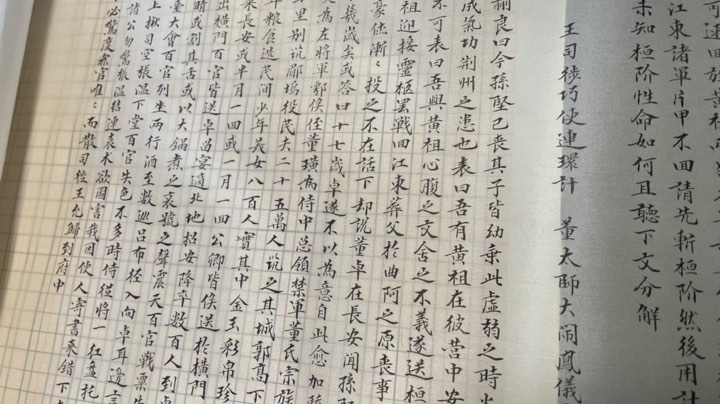 可速回放黃祖
江東諸軍片甲不回請先斬桓階然後用計
未知桓階性命如何且聽下文分解
王司徒巧使連環計 董太師大鬧鳳儀
蒯良曰今孫堅已喪其子皆幼乘此虛弱之時火
成氣功荊州之患也表曰吾有黃祖在彼營中安
不可表曰吾與黃祖心腹之交舍之不義遂送桓
祖迎接靈柩罷戰回江東葬父於曲阿之原喪事
豪傑漸〻投之不在話下却說董卓在長安聞孫
幾歲矣或答曰十七歲卓遂不以為意自此愈加
為左將軍鄠侯侄董璜為侍中總領禁軍董氏宗族
里別筑郿塢役民夫二十五萬人筑之其城郭高下
年糧食選民間少年美女八百人實其中金玉彩帛珍
來長安或半月一回或一月一回公卿皆候送於橫門
出橫門百官皆送卓留宴適北地招安降卒數百人到
睛或割其舌或以大鍋煮之哀號之聲震天百官戰慄失
臺大會百官列坐兩行酒至數巡呂布徑入向卓耳邊言
上揪司空張溫下堂百官失色不多時侍從將一紅盤托
諸公勿驚張溫結連袁术欲圖害我因使人寄書來錯下
必驚度眾官唯〻而散司徒王允歸到府中